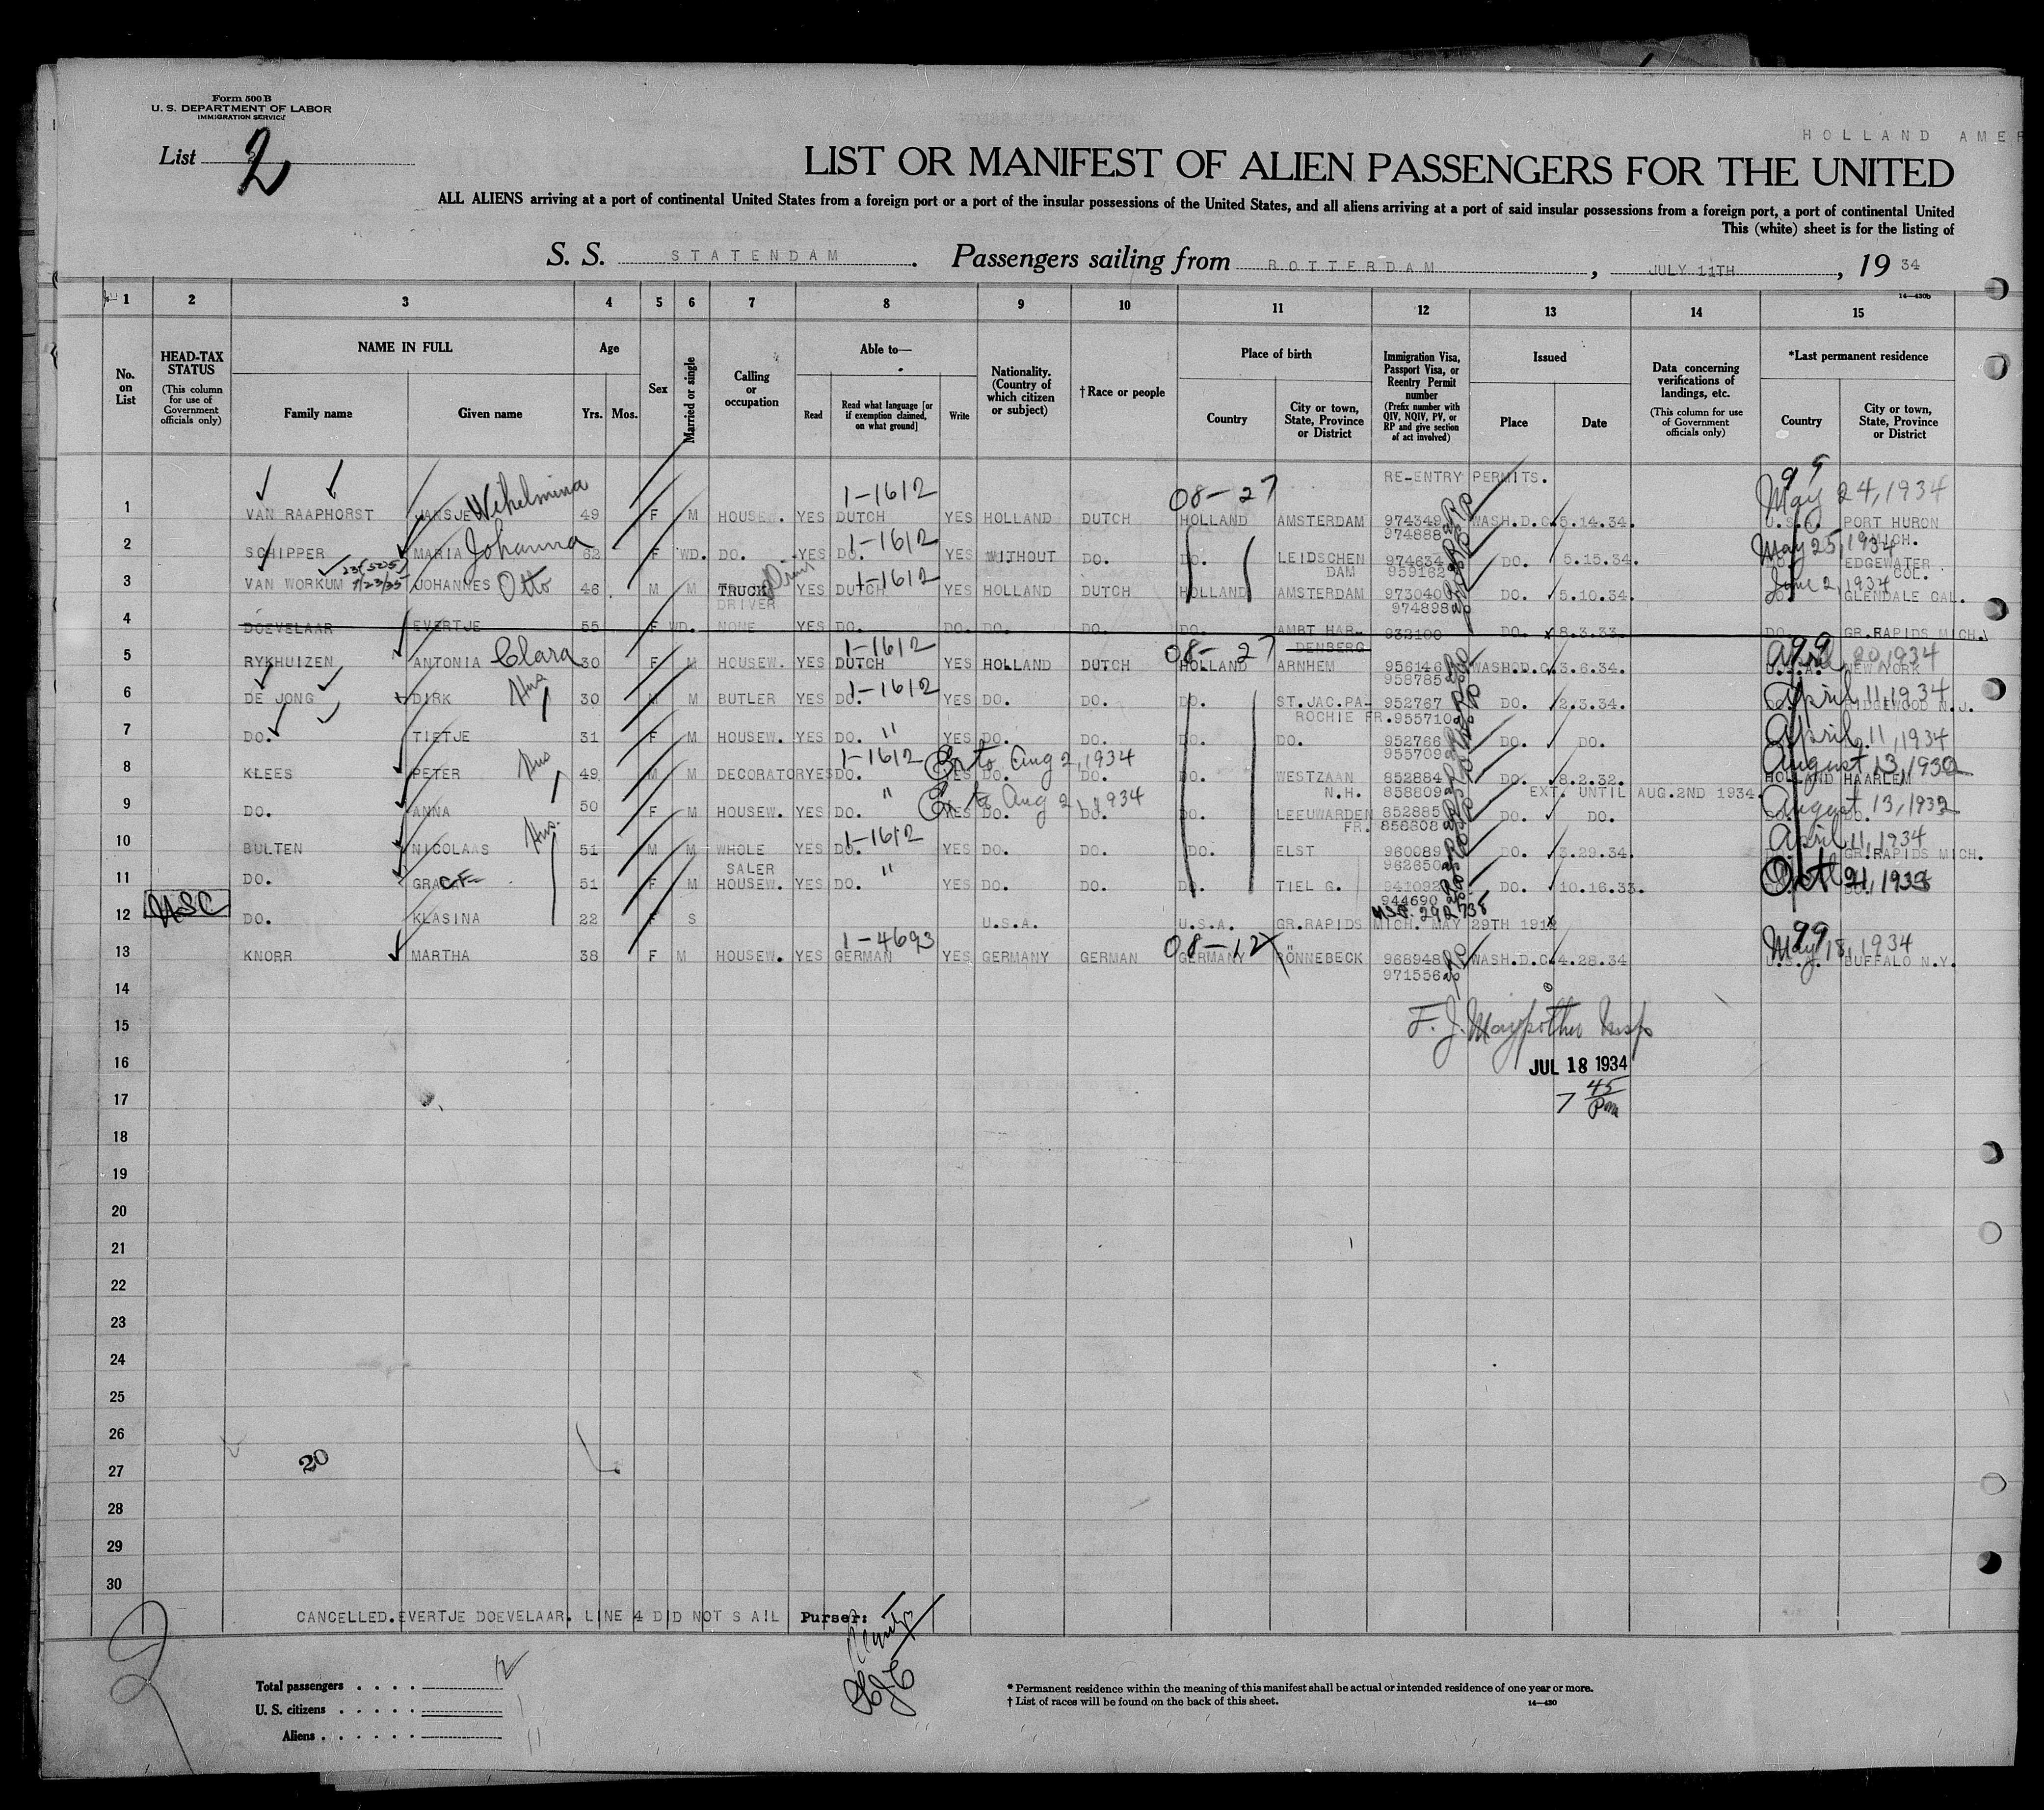 Form 500 B
U. S. DEPARTMENT OF LABOR
IMMIGRATION SERVICE
HOLLAND AMER
List 2
LIST OR MANIFEST OF ALIEN PASSENGERS FOR THE UNITED
ALL ALIENS arriving at a port of continental United States from a foreign port or a port of the insular possessions of the United States, and all aliens arriving at a port of said insular possessions from a foreign port, a port of continental United
This (white) sheet is for the listing of
S. S. STATENDAM. Passengers sailing from ROTTERDAM, JULY 11TH, 19 34
14—430b
1 2 3 4 5 6 7 8 9 10 11 12 13 14 15
No. on List
HEAD-TAX STATUS (This column for use of Government officials only)
NAME IN FULL
Family name Given name
Age
Yrs. Mos.
Sex
Married or single
Calling or occupation
Able to—
Read Read what language [or if exemption claimed, on what ground] Write
Nationality. (Country of which citizen or subject)
† Race or people
Place of birth
Country City or town, State, Province or District
Immigration Visa, Passport Visa, or Reentry Permit number (Prefix number with QIV, NQIV, PV, or RP and give section of act involved)
Issued
Place Date
Data concerning verifications of landings, etc. (This column for use of Government officials only)
*Last permanent residence
Country City or town, State, Province or District
RE-ENTRY PERMITS.
1-1612 08-27 99 May 24, 1934
1 VAN RAAPHORST JANSJE Wihelmina 49 F M HOUSEW. YES DUTCH YES HOLLAND DUTCH HOLLAND AMSTERDAM 974349 WASH.D.C. 5.14.34. U.S.A. PORT HURON
974888 MICH.
1-1612 May 25, 1934
2 SCHIPPER MARIA Johanna 62 F WD. DO. YES DO. YES WITHOUT DO. DO. LEIDSCHEN 974634 DO. 5.15.34. DO. EDGEWATER
DAM 959162 COL.
1-1612 June 2, 1934
3 VAN WORKUM 7/23/35 JOHANNES Otto 46 M M TRUCK YES DUTCH YES HOLLAND DUTCH HOLLAND AMSTERDAM 973040 DO. 5.10.34. DO. GLENDALE CAL.
DRIVER 974898
4 DOEVELAAR EVERTJE 55 F WD. NONE YES DO. DO. DO. DO. DO. AMBT HAR- 932100 DO. 8.3.33. DO. GR.RAPIDS MICH.
DENBERG
1-1612 08-27 99 April 20, 1934
5 RYKHUIZEN ANTONIA Clara 30 F M HOUSEW. YES DUTCH YES HOLLAND DUTCH HOLLAND ARNHEM 956146 WASH.D.C. 3.6.34. U.S.A. NEW YORK
958785
1-1612 April 11, 1934
6 DE JONG DIRK 30 M M BUTLER YES DO. YES DO. DO. DO. ST.JAC.PA- 952767 DO. 2.3.34. DO. RIDGEWOOD N.J.
ROCHIE FR. 955710
" April 11, 1934
7 DO. TIETJE 31 F M HOUSEW. YES DO. YES DO. DO. DO. DO. 952766 DO. DO.
955709
1-1612 Ex to Aug 2, 1934 August 13, 1932
8 KLEES PETER 49 M M DECORATOR YES DO. YES DO. DO. DO. WESTZAAN 852884 DO. 8.2.32. HOLLAND HAARLEM
N.H. 858809 EXT. UNTIL AUG.2ND 1934.
" Ex to Aug 2, 1934 August 13, 1932
9 DO. ANNA 50 F M HOUSEW. YES DO. YES DO. DO. DO. LEEUWARDEN 852885 DO. DO. DO. DO.
FR. 858808
1-1612 April 11, 1934
10 BULTEN NICOLAAS 51 M M WHOLE YES DO. YES DO. DO. DO. ELST 960089 DO. 3.29.34. GR.RAPIDS MICH.
SALER 962650
"
11 DO. 51 F M HOUSEW. YES DO. YES DO. DO. DO. TIEL G. 941092 DO. 10.16.33.
944690
USC
12 DO. KLASINA 22 F S U.S.A. U.S.A. GR.RAPIDS MICH. MAY 29TH 1912
1-4693 08-12 99 May 18, 1934
13 KNORR MARTHA 38 F M HOUSEW. YES GERMAN YES GERMANY GERMAN GERMANY RÖNNEBECK 968948 WASH.D.C. 4.28.34 U.S.A. BUFFALO N.Y.
971556
14
15
16 JUL 18 1934
17 7 45 Pm
18
19
20
21
22
23
24
25
26
27 20
28
29
30
CANCELLED.EVERTJE DOEVELAAR. LINE 4 DID NOT SAIL Purser:
Total passengers . . . . 12
U. S. citizens . . . . . 1
Aliens . . . . . . 11
* Permanent residence within the meaning of this manifest shall be actual or intended residence of one year or more.
† List of races will be found on the back of this sheet. 14—430